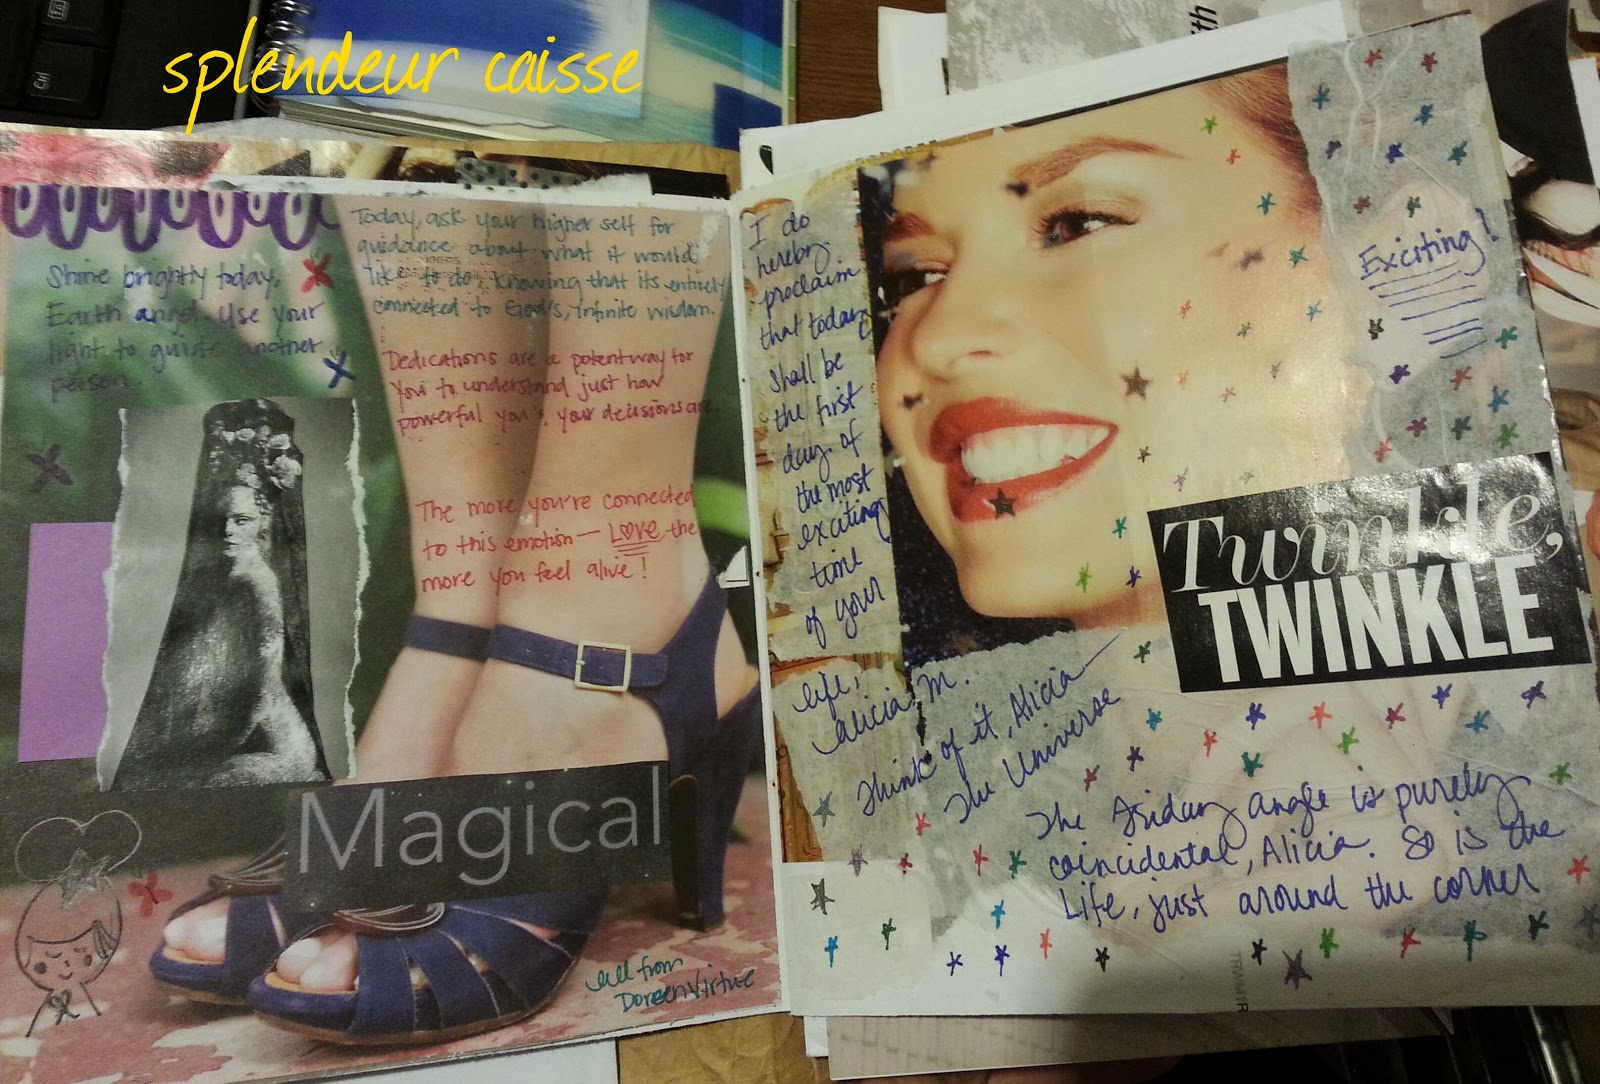 splendeur caisse
Shine brightly today,
Earth angel. Use your
light to guide another
person.
Today, ask your higher self for
guidance about what it would
like to do, knowing that its entirely
connected to God's, infinite wisdom.
Dedications are a potent way for
you to understand just how
powerful you & your decisions are.
The more you're connected
to this emotion — Love the
more you feel alive!
Magical
all from
Doreen Virtue
I do
hereby
proclaim
that today
shall be
the first
day of
the most
exciting
time
of your
life,
alicia M.
Think of it, Alicia —
The Universe
Exciting!
Twinkle,
TWINKLE
The Friday angle is purely
coincidental, Alicia. So is the
Life, just around the corner
with